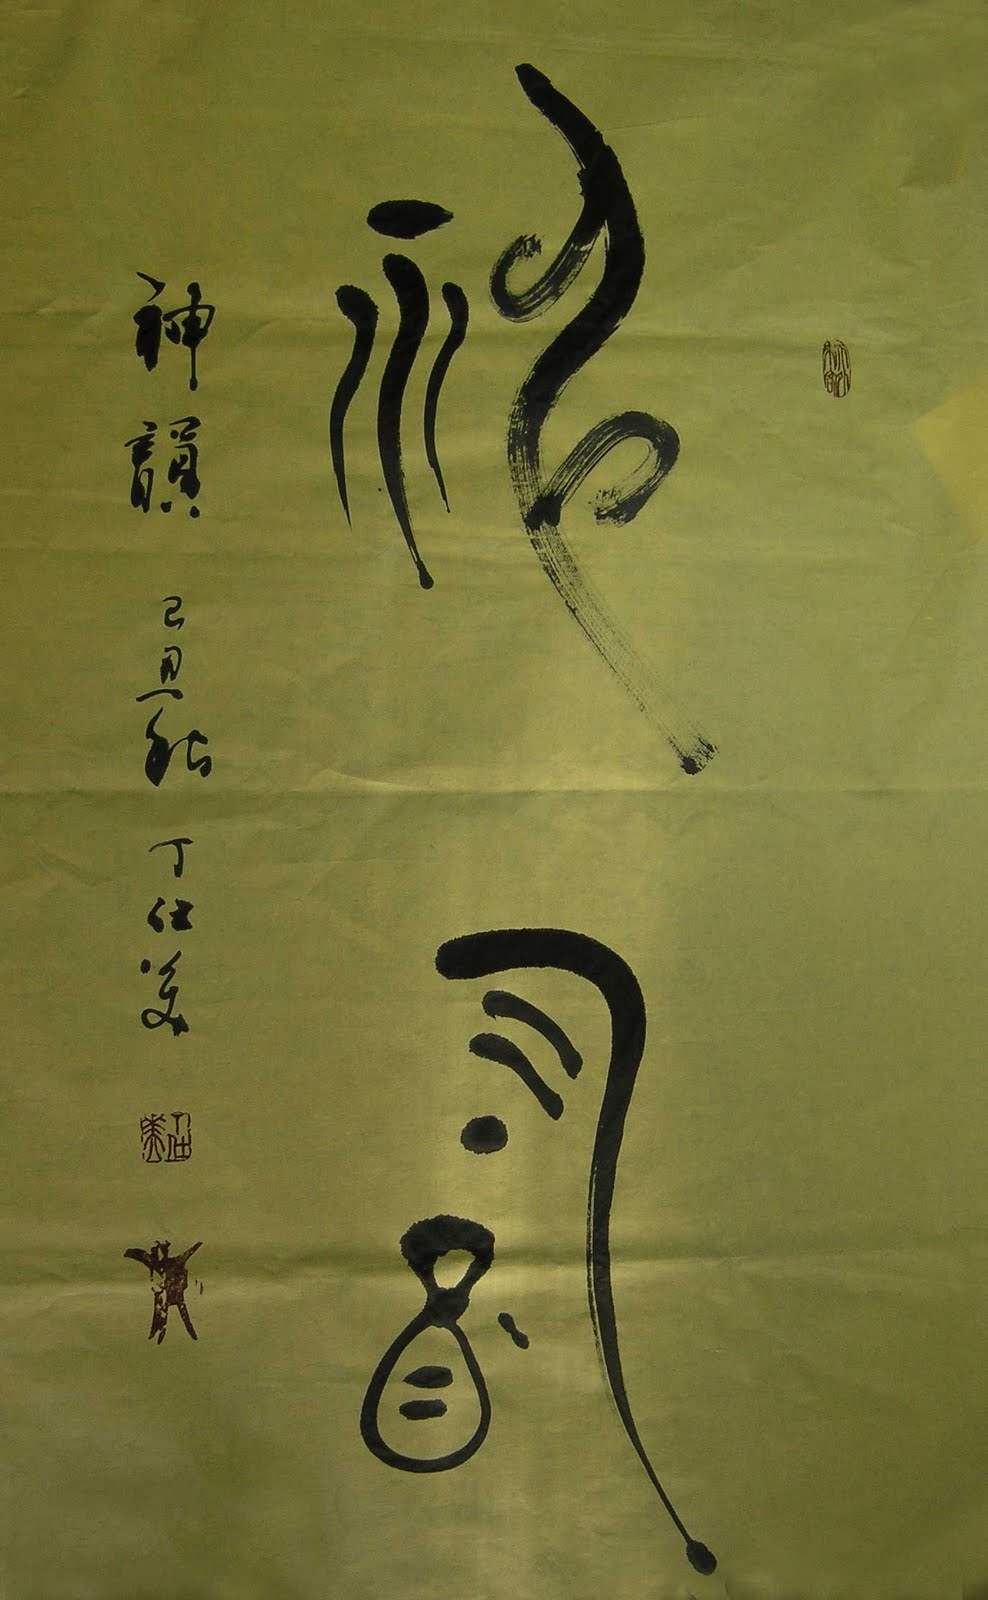 神韵
神韻 己丑秋 丁仕美